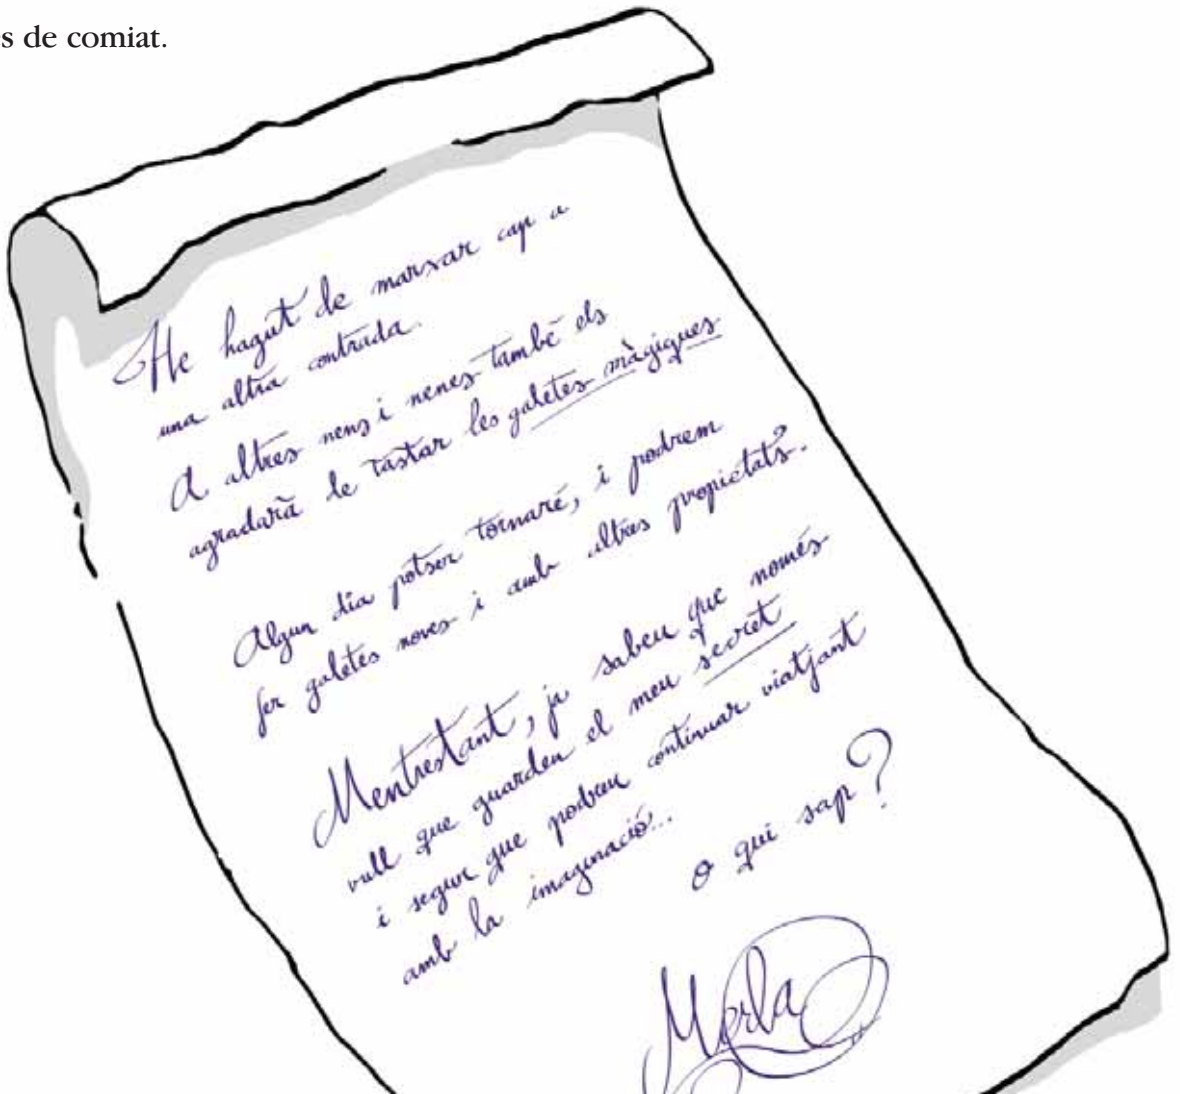 s de comiat.
He hagut de marxar cap a
una altra contrada.
A altres nens i nenes també els
agradarà de tastar les galetes màgiques
Algun dia potser tornaré, i podrem
fer galetes noves i amb altres propietats.
Mentrestant, ja sabeu que només
vull que guardeu el meu secret
i segur que podreu continuar viatjant
amb la imaginació...
o qui sap?
Merla